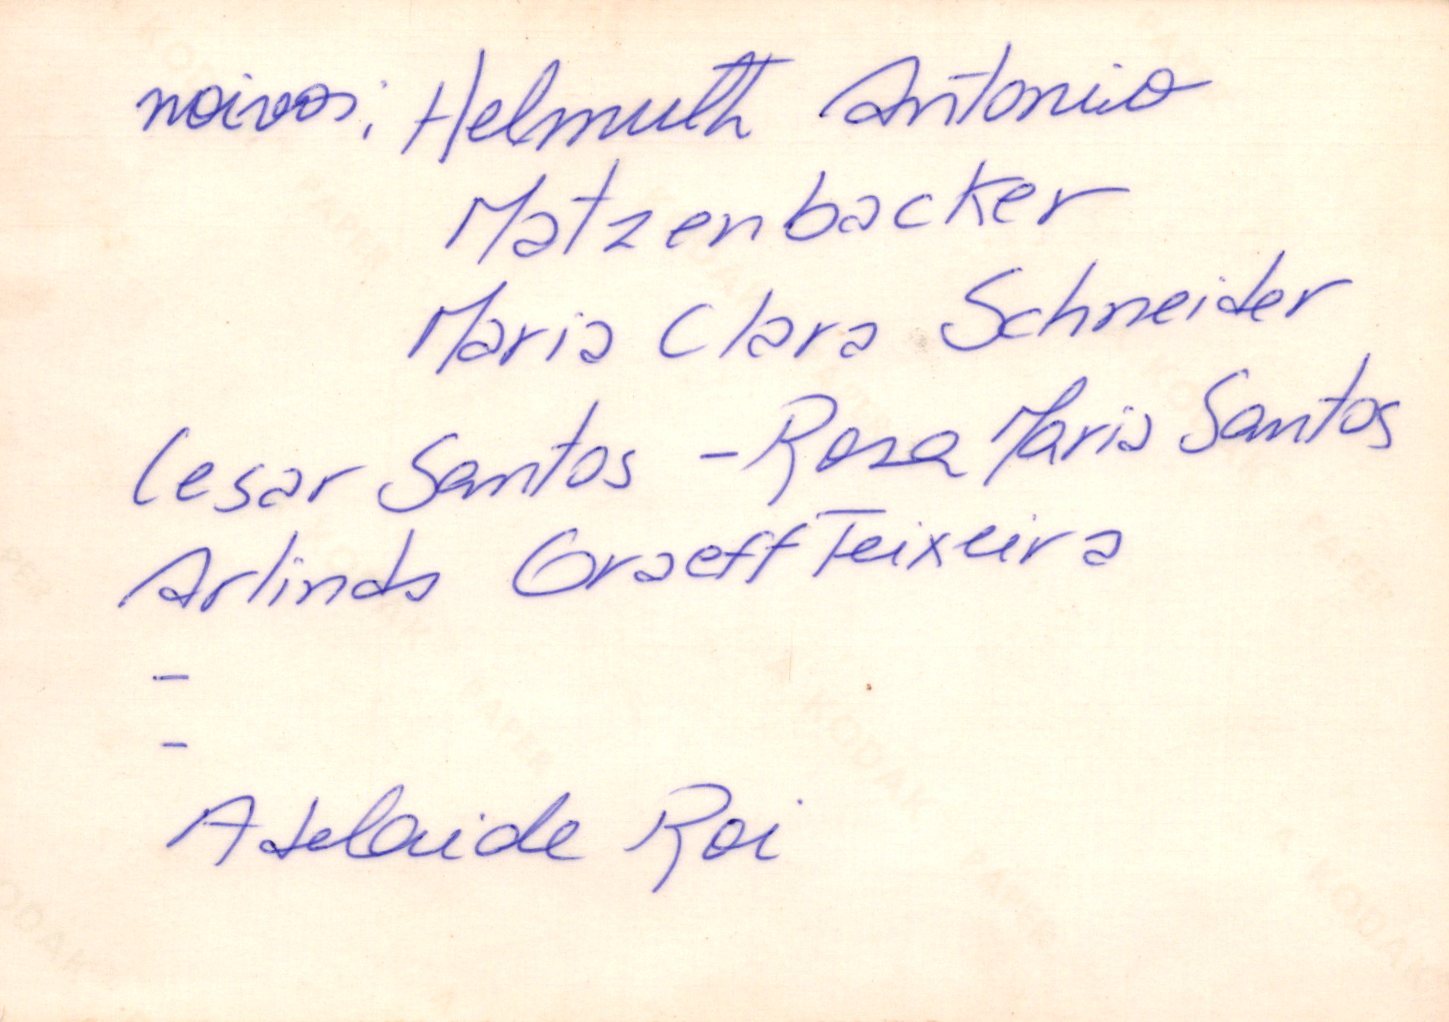 noivos: Helmuth Antonio
Matzenbacker
Maria Clara Schneider
Cesar Santos - Rosa Maria Santos
Arlindo Graeff Teixeira
-
-
Adelaide Roi